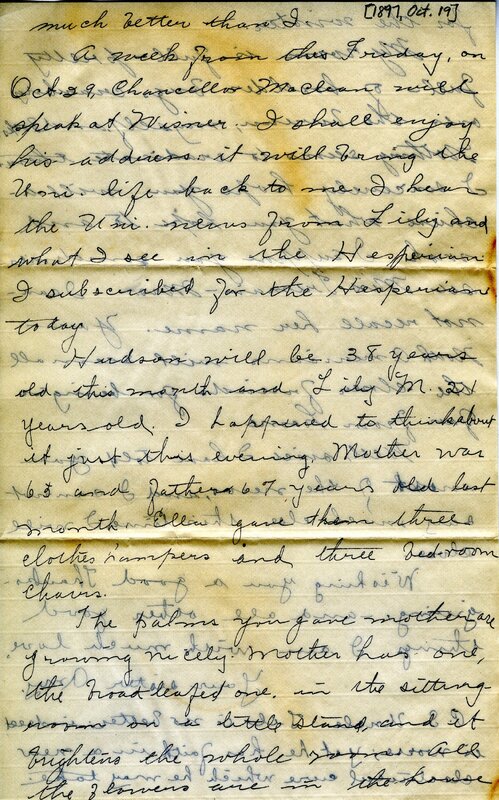 [1897, Oct. 19]
much better than I.
A week from this Friday, on
Oct 29, Chancellor Maclean will
speak at Wisner. I shall enjoy
his address it will bring the
Uni life back to me I hear
the Uni. news from Lily and
what I see in the Hesperian
I subscribed for the Hesperian
today.
Hudson will be 38 years
old this month and Lily M. 2
years old. I happened to think about
it just this evening. Mother was
65 and father 67 years old last
month. Ella gave them three
clothes hampers and three bedroom
chairs.
The palms you gave mother are
growing nicely. Mother has one,
the broad leafed one, in the sitting-
room on a little stand, and it
brightens the whole room. All
the flowers are in the house